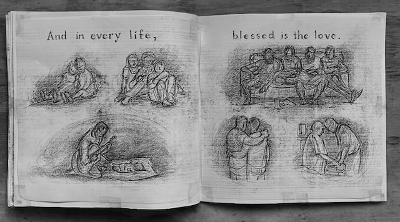 And in every life,
blessed is the love.